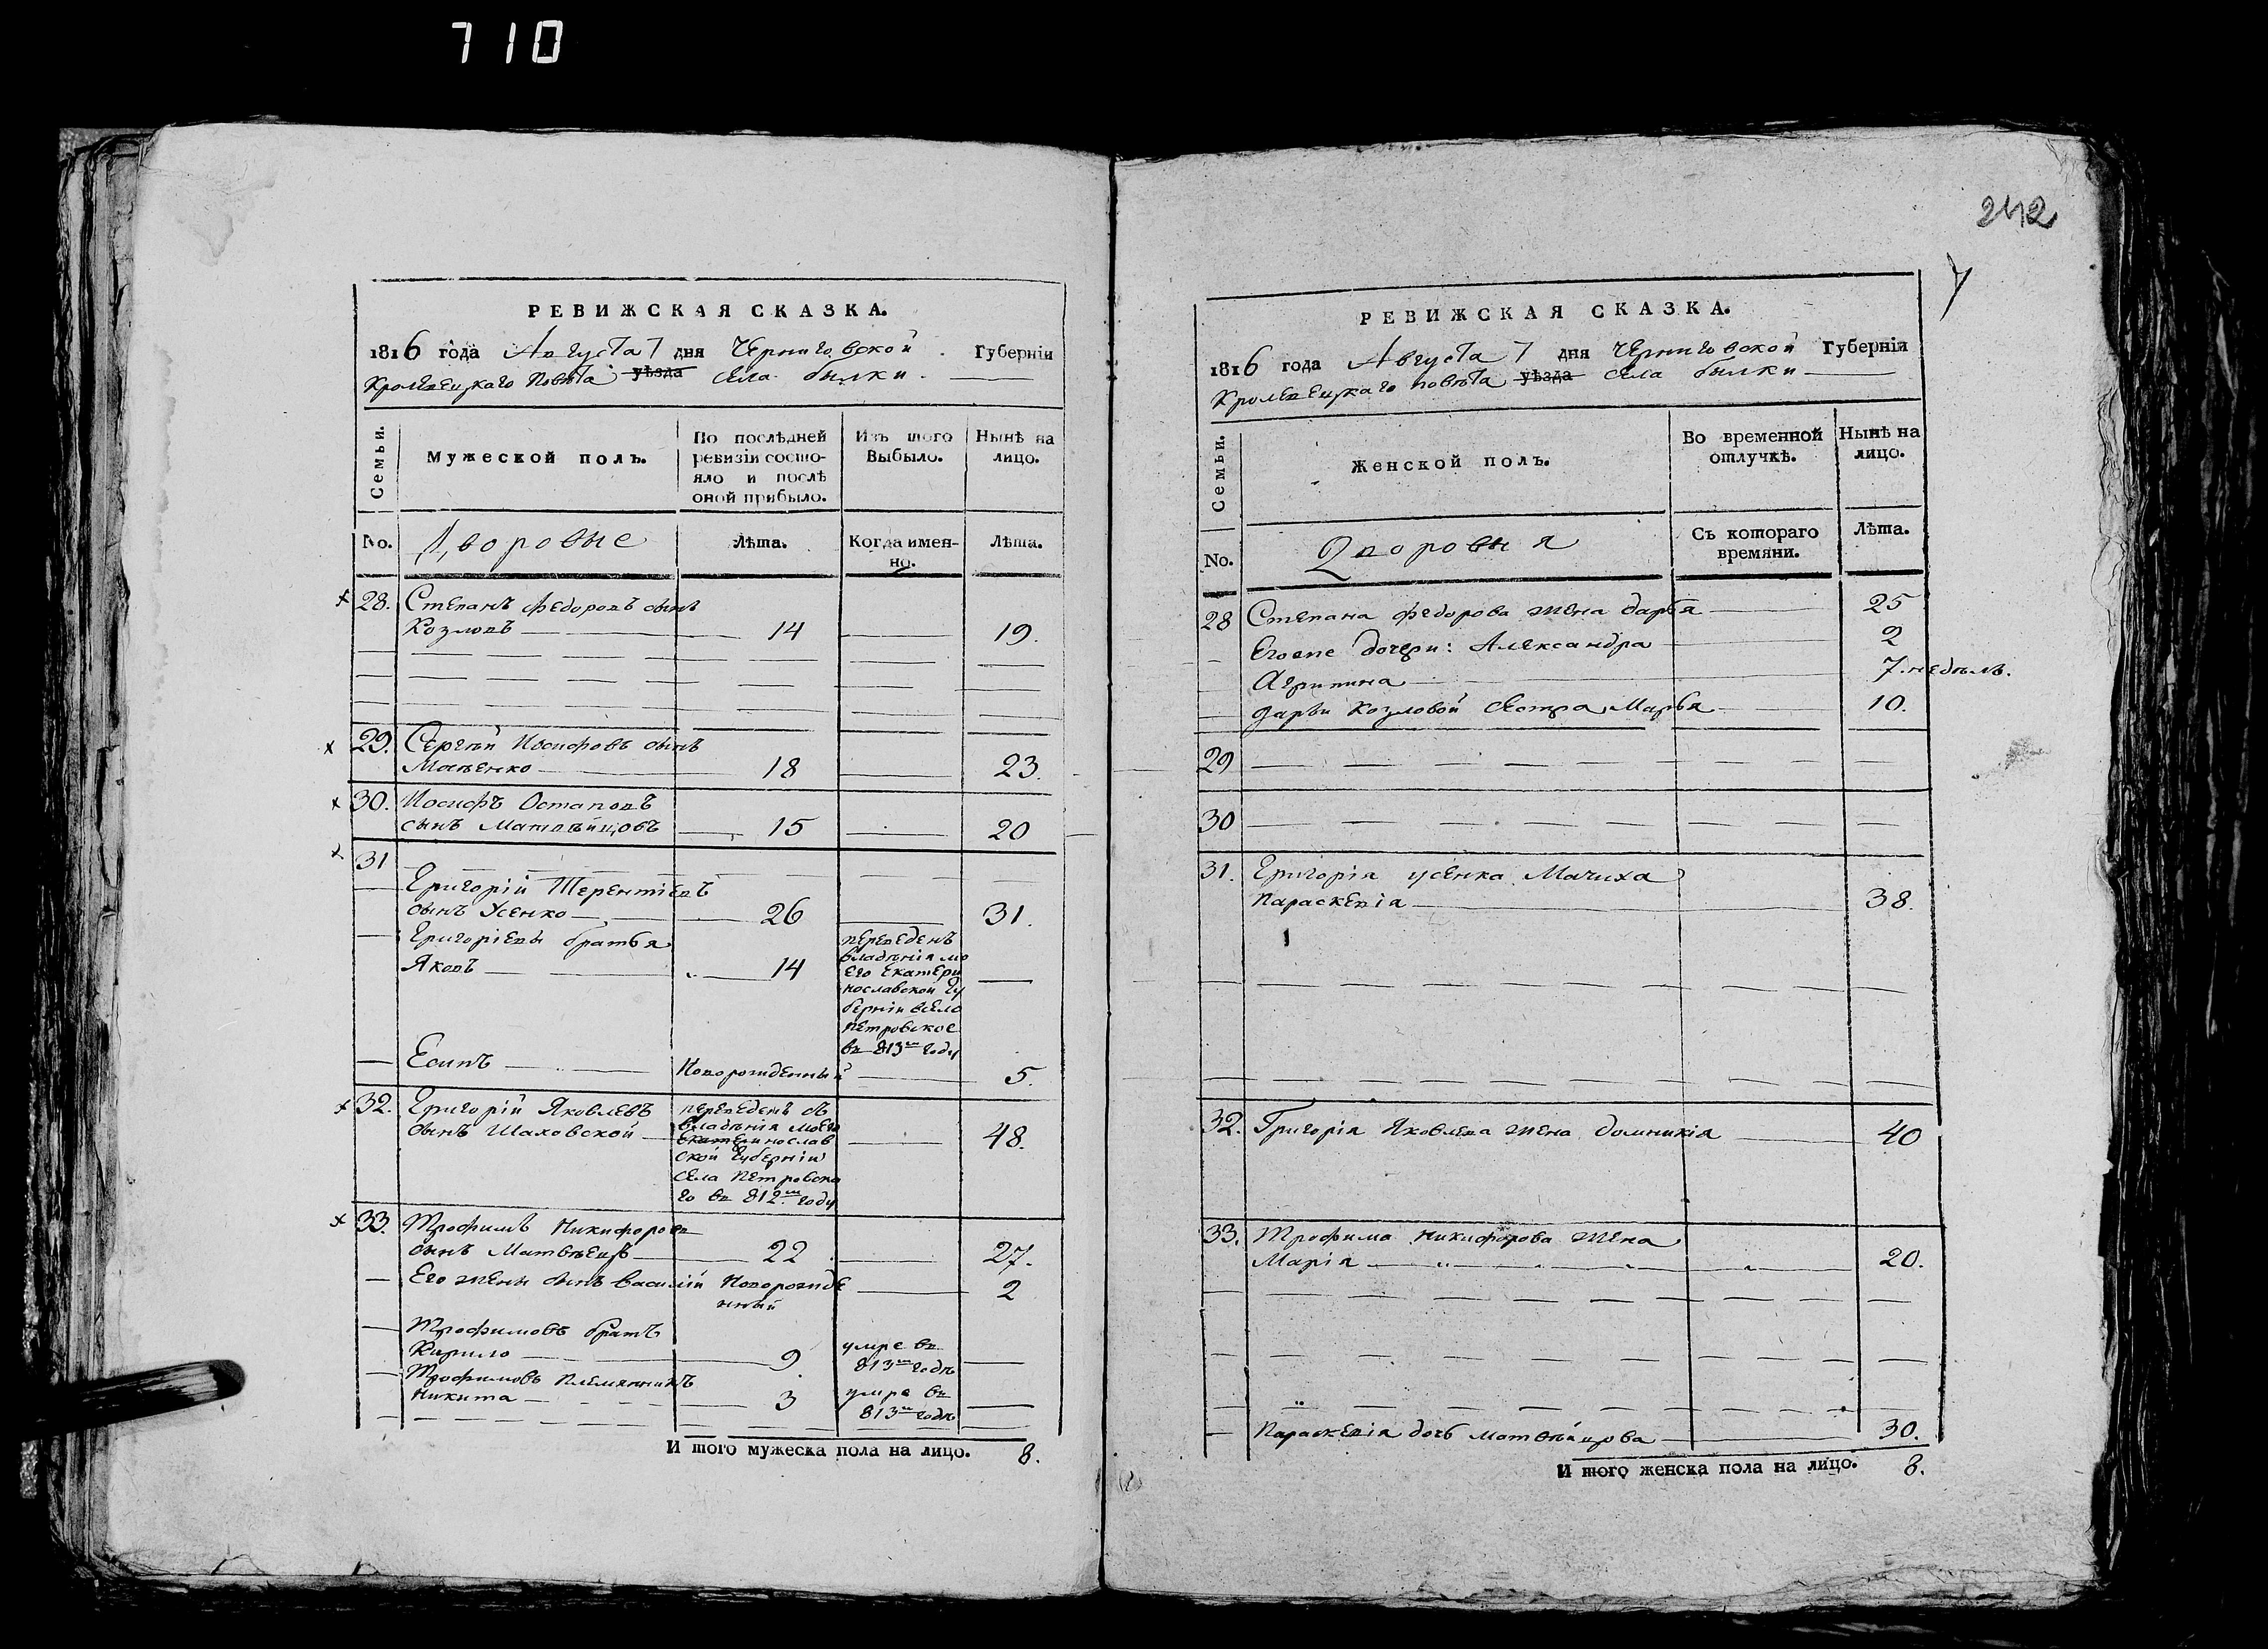 710
242
7
РЕВИЖСКАЯ СКАЗКА.
1816 года Августа 7 дня Черниговской Губерніи
Кролевецкаго Повѣта уѣзда села былки
Семьи.
Мужеской полъ.
По послѣдней ревизіи состояло и послѣ оной прибыло.
Изъ того Выбыло.
Нынѣ на лицо.
No.
Дворовые
Лѣта.
Когда именно.
Лѣта.
28. Степанъ Федоровъ сынъ
Козловъ 14 19.
29. Сергѣй Иосифовъ сынъ
18 23.
30. Иосифъ Остаповъ
сынъ Матвѣйцовъ 15 20
31
Григорій Терентіевъ
сынъ Усенко 26 31.
Григоріевы братья
Яковъ 14
переведенъ
владѣнія мо
его Екатери
нославской гу
берніи всело
петровское
въ 813м году
Есипъ Новорожденный 5.
32. Григорій Яковлевъ
сынъ Шаховской 48.
переведенъ съ
владѣнія моего
Екатеринослав
ской Губерніи
села Петровска
го въ 812м году
33. Трофимъ Никифоровъ
сынъ Матвѣецъ 22 27.
Его жены сынъ василій Новорожде
нный 2
Трофимовъ братъ
Кирило 9 умре въ
813м годѣ
Трофимовъ племянникъ
Никита 3 умре въ
813м годѣ
И того мужеска пола на лицо. 8.
РЕВИЖСКАЯ СКАЗКА.
1816 года Августа 7 дня Черниговской Губерніи
Кролевецкаго повѣта уѣзда села былки
Семьи.
Женской полъ.
Во временной отлучкѣ.
Нынѣ на лицо.
No.
Дворовыя
Съ котораго времяни.
Лѣта.
28 Степана федорова жена дарья 25
Егоже дочери: Александра 2
Агрипина 7. недѣль.
дарьи Козловой сестра Марья 10.
29
30
31. Григорія усенка Мачиха
параскевія 38.
32. Григорія Яковлева жена домникія 40
33. Трофима никифорова жена
Марія 20.
параскевія дочь матвѣйцова 30.
И того женска пола на лицо. 8.